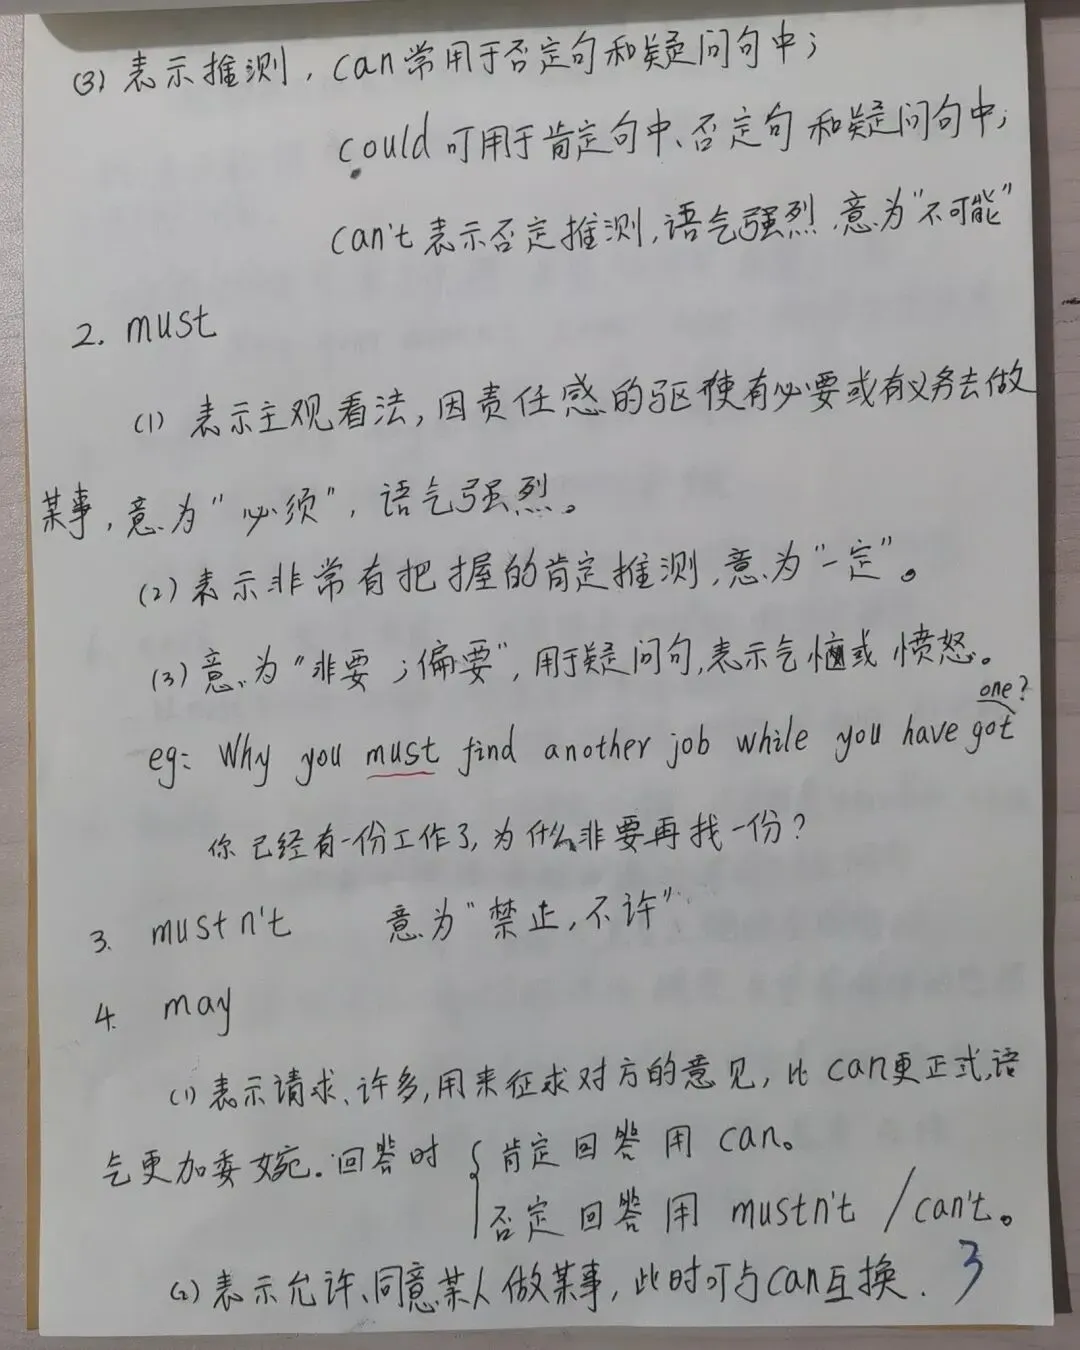 (3) 表示推测，can常用于否定句和疑问句中；
could 可用于肯定句中、否定句和疑问句中；
can't 表示否定推测，语气强烈，意为"不可能"
2. must
(1) 表示主观看法，因责任感的驱使有必要或有义务去做
某事，意为"必须"，语气强烈。
(2) 表示非常有把握的肯定推测，意为"一定"。
(3) 意为"非要；偏要"，用于疑问句，表示气恼或愤怒。
eg: Why you must find another job while you have got one?
你已经有一份工作了，为什么非要再找一份？
3. mustn't 意为"禁止，不许"
4. may
(1) 表示请求、许多，用来征求对方的意见，比can更正式，语
气更加委婉。回答时 { 肯定回答用 can。
否定回答用 mustn't / can't。
(2) 表示允许、同意某人做某事，此时可与can互换. 3